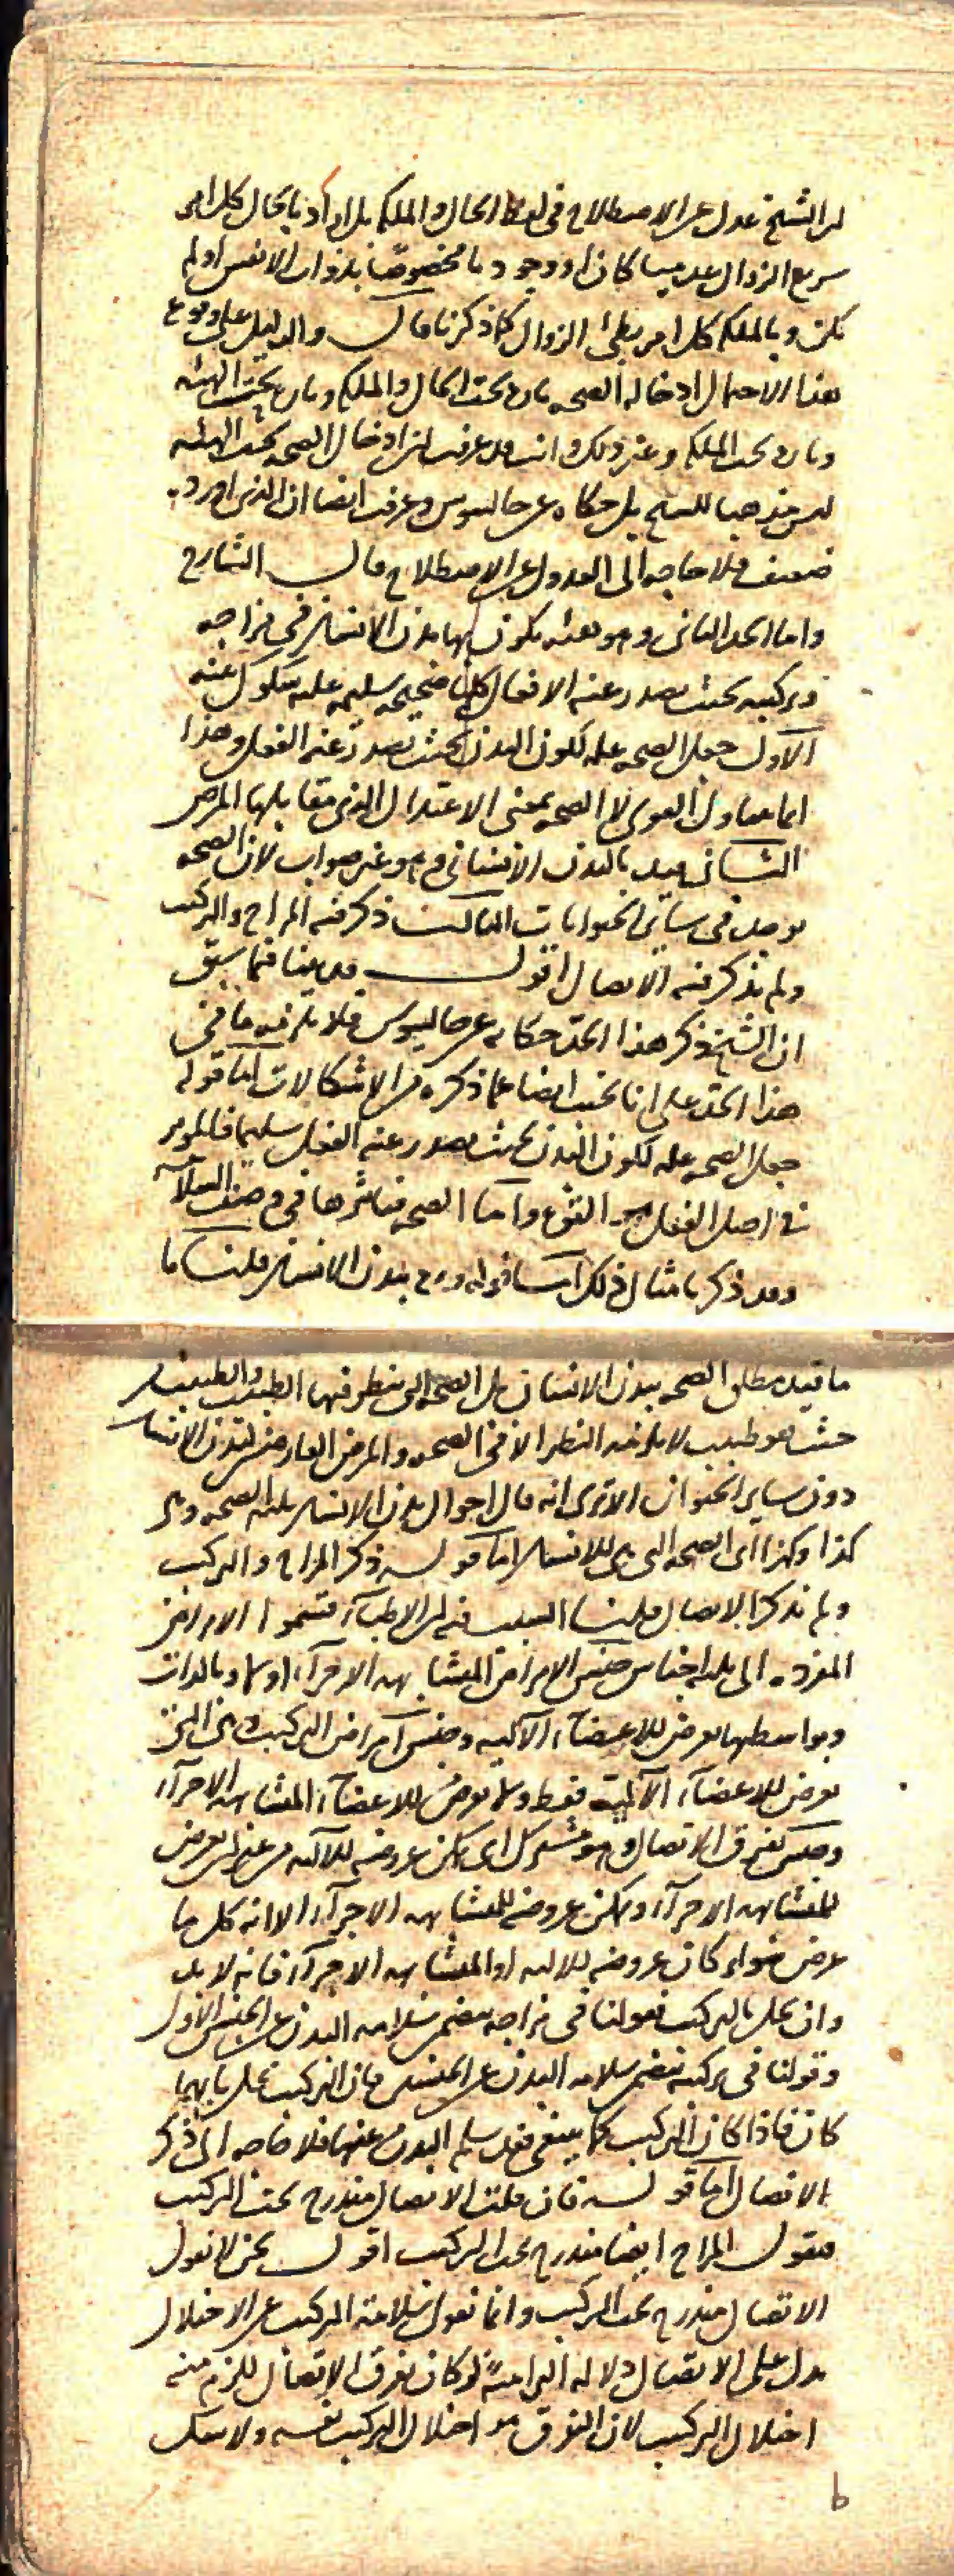 ان الشيخ عدل عن الاصطلاح في لفظ الحال والملكة بل اراد بالحال كل امر
سريع الزوال عدميا كان او وجوديا مخصوصا بذوات الانفس او لم
يكن وبالملكة كل امر بطئ الزوال كما ذكرنا قال والدليل على وقوع
هذا الاحتمال ادخاله الصحة تارة تحت الحال والملكة وتارة تحت الهيئة
وتارة تحت الملكة وغير ذلك وانت قد عرفت ان ادخال الصحة تحت الهيئة
ليس مذهبا للشيخ بل حكاه عن جالينوس وعرفت ايضا ان الذي اورده
ضعيف فلا حاجة الى العدول عن الاصطلاح قال الشارح
واما الحد الثاني وهو هيئة يكون بها بدن الانسان في مزاجه
وتركيبه بحيث يصدر عنه الافعال كلها صحيحة سليمة عليه شكوك
الاول جعل الصحة علة لكون البدن بحيث يصدر عنه الفعل وهذا
انما يتناول القوى لا الصحة بمعنى الاعتدال الذي مقابلها المرض
الثاني قيد بالبدن الانساني وهو غير صواب لان الصحة
توجد في ساير الحيوانات الثالث ذكر فيه المزاج والتركيب
ولم يذكر فيه الاتصال اقول قد بينا فيما سبق
ان الشيخ ذكر هذا الحد حكاية عن جالينوس فلا يلزمه ما في
هذا الحد على انا نجيب ايضا عما ذكره من الاشكالات اما قوله
جعل الصحة علة لكون البدن بحيث يصدر عنه الفعل سليما فالموثر
في اصل الفعل هو القوى واما الصحة فتاثيرها في وصف السلامة
وقد ذكرنا مثال ذلك اما قوله بدن الانسان قلنا ما
ما قيد مطلق الصحة ببدن الانسان بل الصحة التي ينظر فيها الطبيب والطبيب من
حيث هو طبيب لا يلزمه النظر الا في الصحة والمرض العارضين لبدن الانسان
دون ساير الحيوان الا ترى انه قال احوال بدن الانسان ثلثة الصحة وهي
كذا وكذا اي الصحة التي هي للانسان اما قوله ذكر المزاج والتركيب
ولم يذكر الاتصال قلنا السبب فيه ان الاطباء قسموا الامراض
المفردة الى ثلثة اجناس جنس الامراض المتشابهة الاجزاء اولا وبالذات
وبواسطتها يعرض للاعضاء الالية وجنس امراض التركيب وهي التي
تعرض للاعضاء الالية فقط ولا تعرض للاعضاء المتشابهة الاجزاء
وجنس تفرق الاتصال وهو مشترك اي يمكن عروضه للالية من غير ان يعرض
للمتشابهة الاجزاء ويمكن عروضه للمتشابهة الاجزاء الا انه كل ما
عرض سواء كان عروضه للالية او المتشابهة الاجزاء فانه لا بد
وان يخل بالتركيب فقولنا في مزاجه يتضمن سلامة البدن عن الجنس الاول
وقولنا في تركيبه يتضمن سلامة البدن عن الجنسين فان التركيب يختل بايهما
كان فاذا كان التركيب كما ينبغي فقد سلم البدن عنهما فلا حاجة الى ذكر
الاتصال اما قوله فان قلت الاتصال مندرج تحت التركيب
فنقول المزاج ايضا مندرج تحت التركيب اقول نحن لا نقول
الاتصال مندرج تحت التركيب وانما نقول سلامة التركيب عن الاختلال
يدل على الاتصال دلالة التزامية لو كان تفرق الاتصال للزم منه
اختلال التركيب لان التفرق هو اختلال التركيب نفسه ولا شك
b